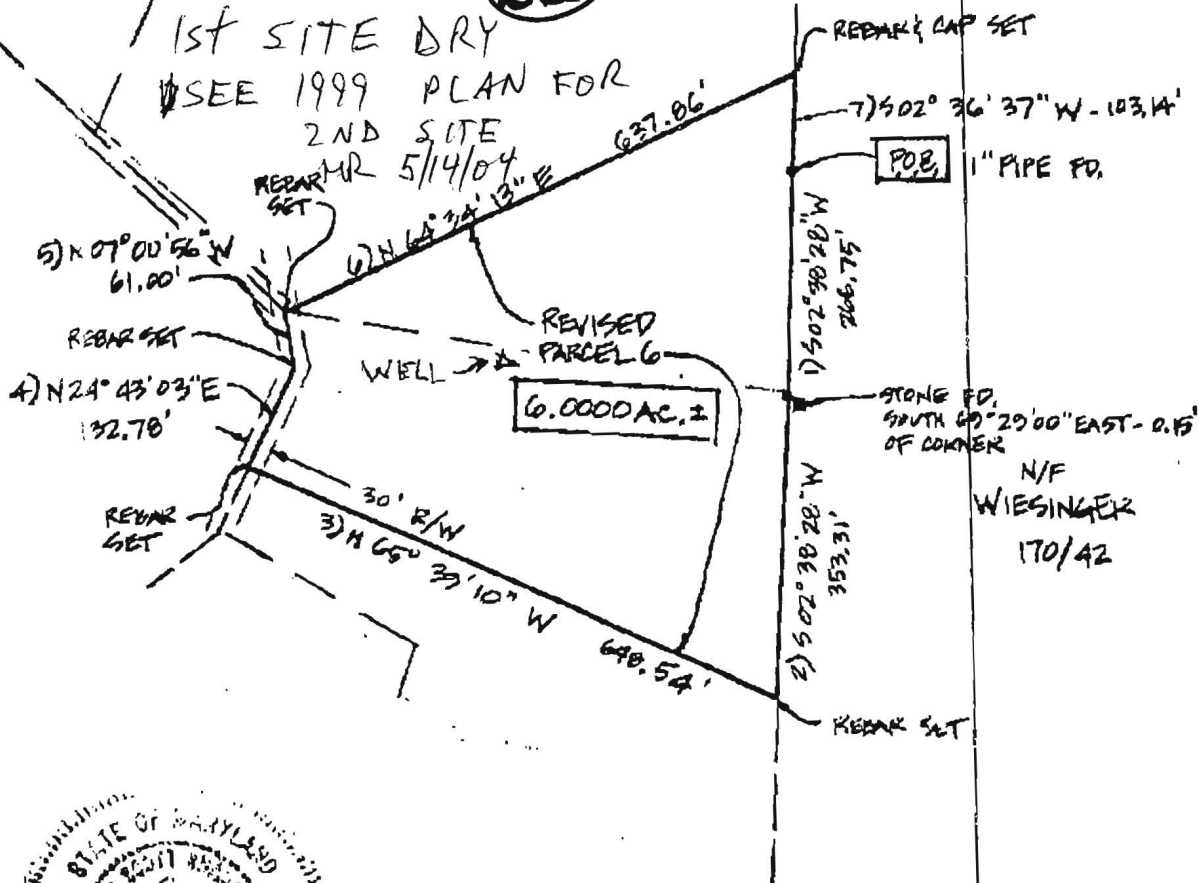 1st SITE DRY
SEE 1999 PLAN FOR
2ND SITE
MR 5/14/04
REBAR & CAP SET
7) S02° 36' 37" W - 103.14'
P.O.B.
1" PIPE FD.
REBAR
SET
637.86'
6) N 64° 34' 13" E
5) N 07° 00' 56" W
61.00'
REBAR SET
4) N 24° 43' 03" E
132.78'
REBAR
SET
WELL
REVISED
PARCEL 6
6.0000 AC. ±
1) S02° 38' 28" W
266.75'
STONE FD.
SOUTH 69° 29' 00" EAST - 0.15'
OF CORNER
N/F
WIESINGER
170/42
2) S 02° 38' 28" W
353.31'
30' R/W
3) N 65° 39' 10" W
648.54'
REBAR SET
STATE OF MARYLAND